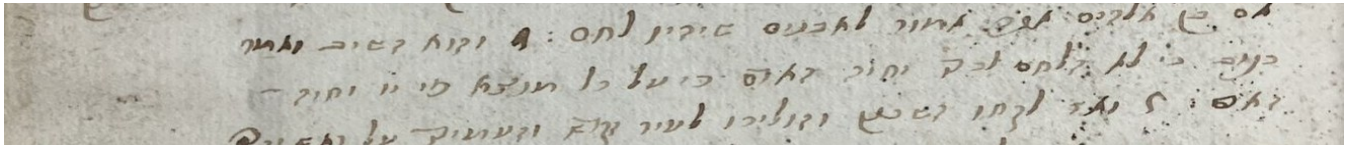 אם בן אלהים אתה אמור לאבנים שיהיו לחם : והוא השיב ואמר
כתוב כי לא בלחם לבד יחיה האדם כי על כל מוצא פי יי יחיה –
האדם : ואז לקחו השטן והוליכו לעיר הקדש והעמידו על